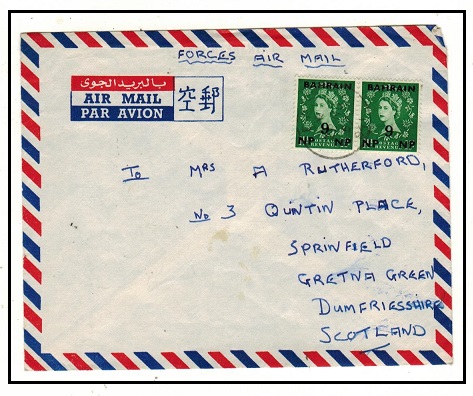 FORCES AIR MAIL
بالبريد الجوى
AIR MAIL
PAR AVION
空郵
BAHRAIN
9
NP NP
POSTAGE
REVENUE
BAHRAIN
9
NP NP
POSTAGE
REVENUE
To MRS A RUTHERFORD,
No 3 QUINTIN PLACE,
SPRINFIELD
GRETNA GREEN
DUMFRIESSHIRE
SCOTLAND